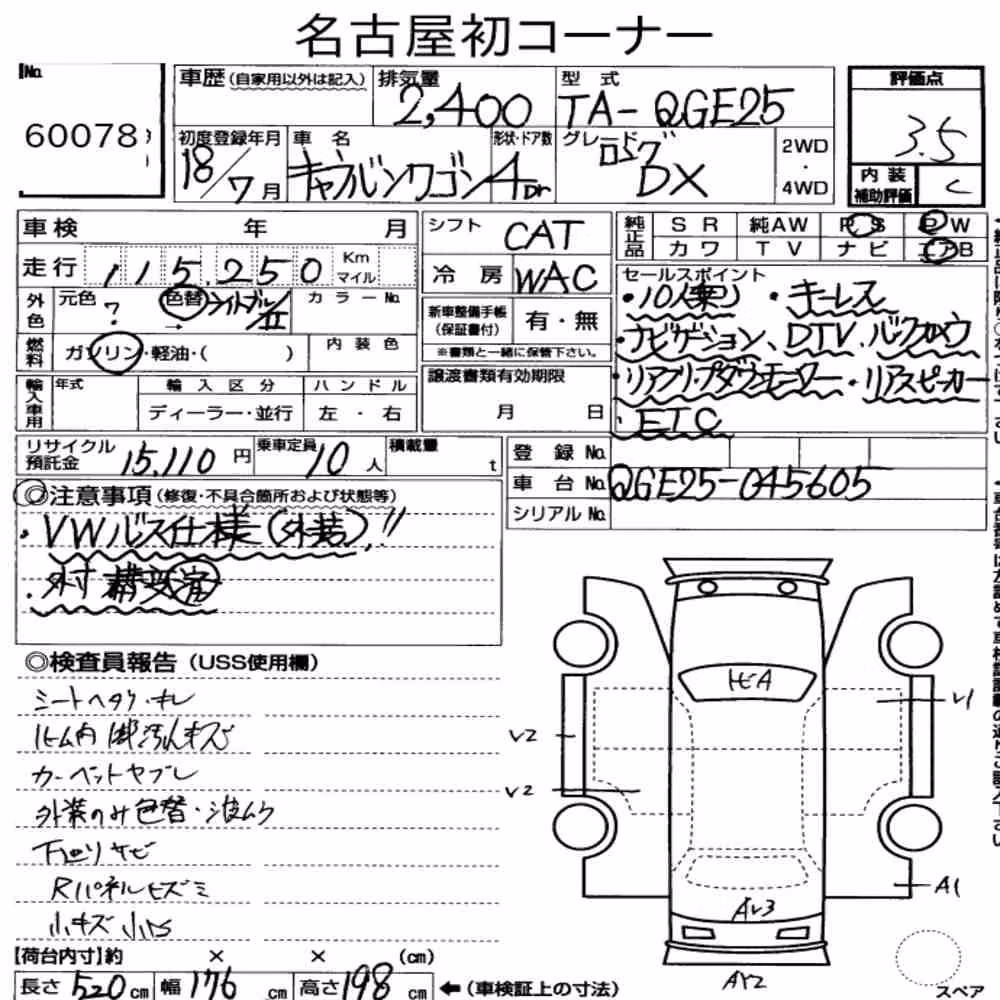 名古屋初コーナー
No.
60078
車歴(自家用以外は記入)
排気量
2,400
型 式
TA-QGE25
評価点
3.5
初度登録年月
18/7月
車 名
キャラバンワゴン
形状・ドア数
4Dr
グレード
ロング
DX
2WD
・
4WD
内 装
補助評価
C
車検 年 月
走行 115,250 Km
マイル
外色
元色
?
色替 ライトブルーⅡ
→
カラーNo.
燃料
ガソリン・軽油・( )
内 装 色
輸入車用
年式
輸 入 区 分
ディーラー・並行
ハ ン ド ル
左 ・ 右
シフト
CAT
冷 房
WAC
新車整備手帳
(保証書付)
有・無
※書類と一緒に保管下さい。
譲渡書類有効期限
月 日
純正品
S R 純AW P S P W
カ ワ T V ナ ビ エアB
セールスポイント
・10人乗り ・キーレス
・ナビゲーション、DTV、バックカメラ
・リアフリップダウンモニター ・リアスピーカー
・ETC
リサイクル
預託金
15,110 円
乗車定員
10 人
積載量
t
登 録 No.
車 台 No. QGE25-045605
シリアル No.
◎注意事項(修復・不具合箇所および状態等)
・VWバス仕様(外装)!!
◎検査員報告(USS使用欄)
シートヘタリ・キレ
ルーム内 汚れキズ
カーペットヤブレ
外装のみ色替・波ムラ
下廻りサビ
Rパネルヒズミ
小キズ 小凹
トビA
V1
V2
V2
A1
AV3
AY2
スペア
【荷台内寸】約 × × (cm)
長さ 520 cm 幅 176 cm 高さ 198 cm ←(車検証上の寸法)